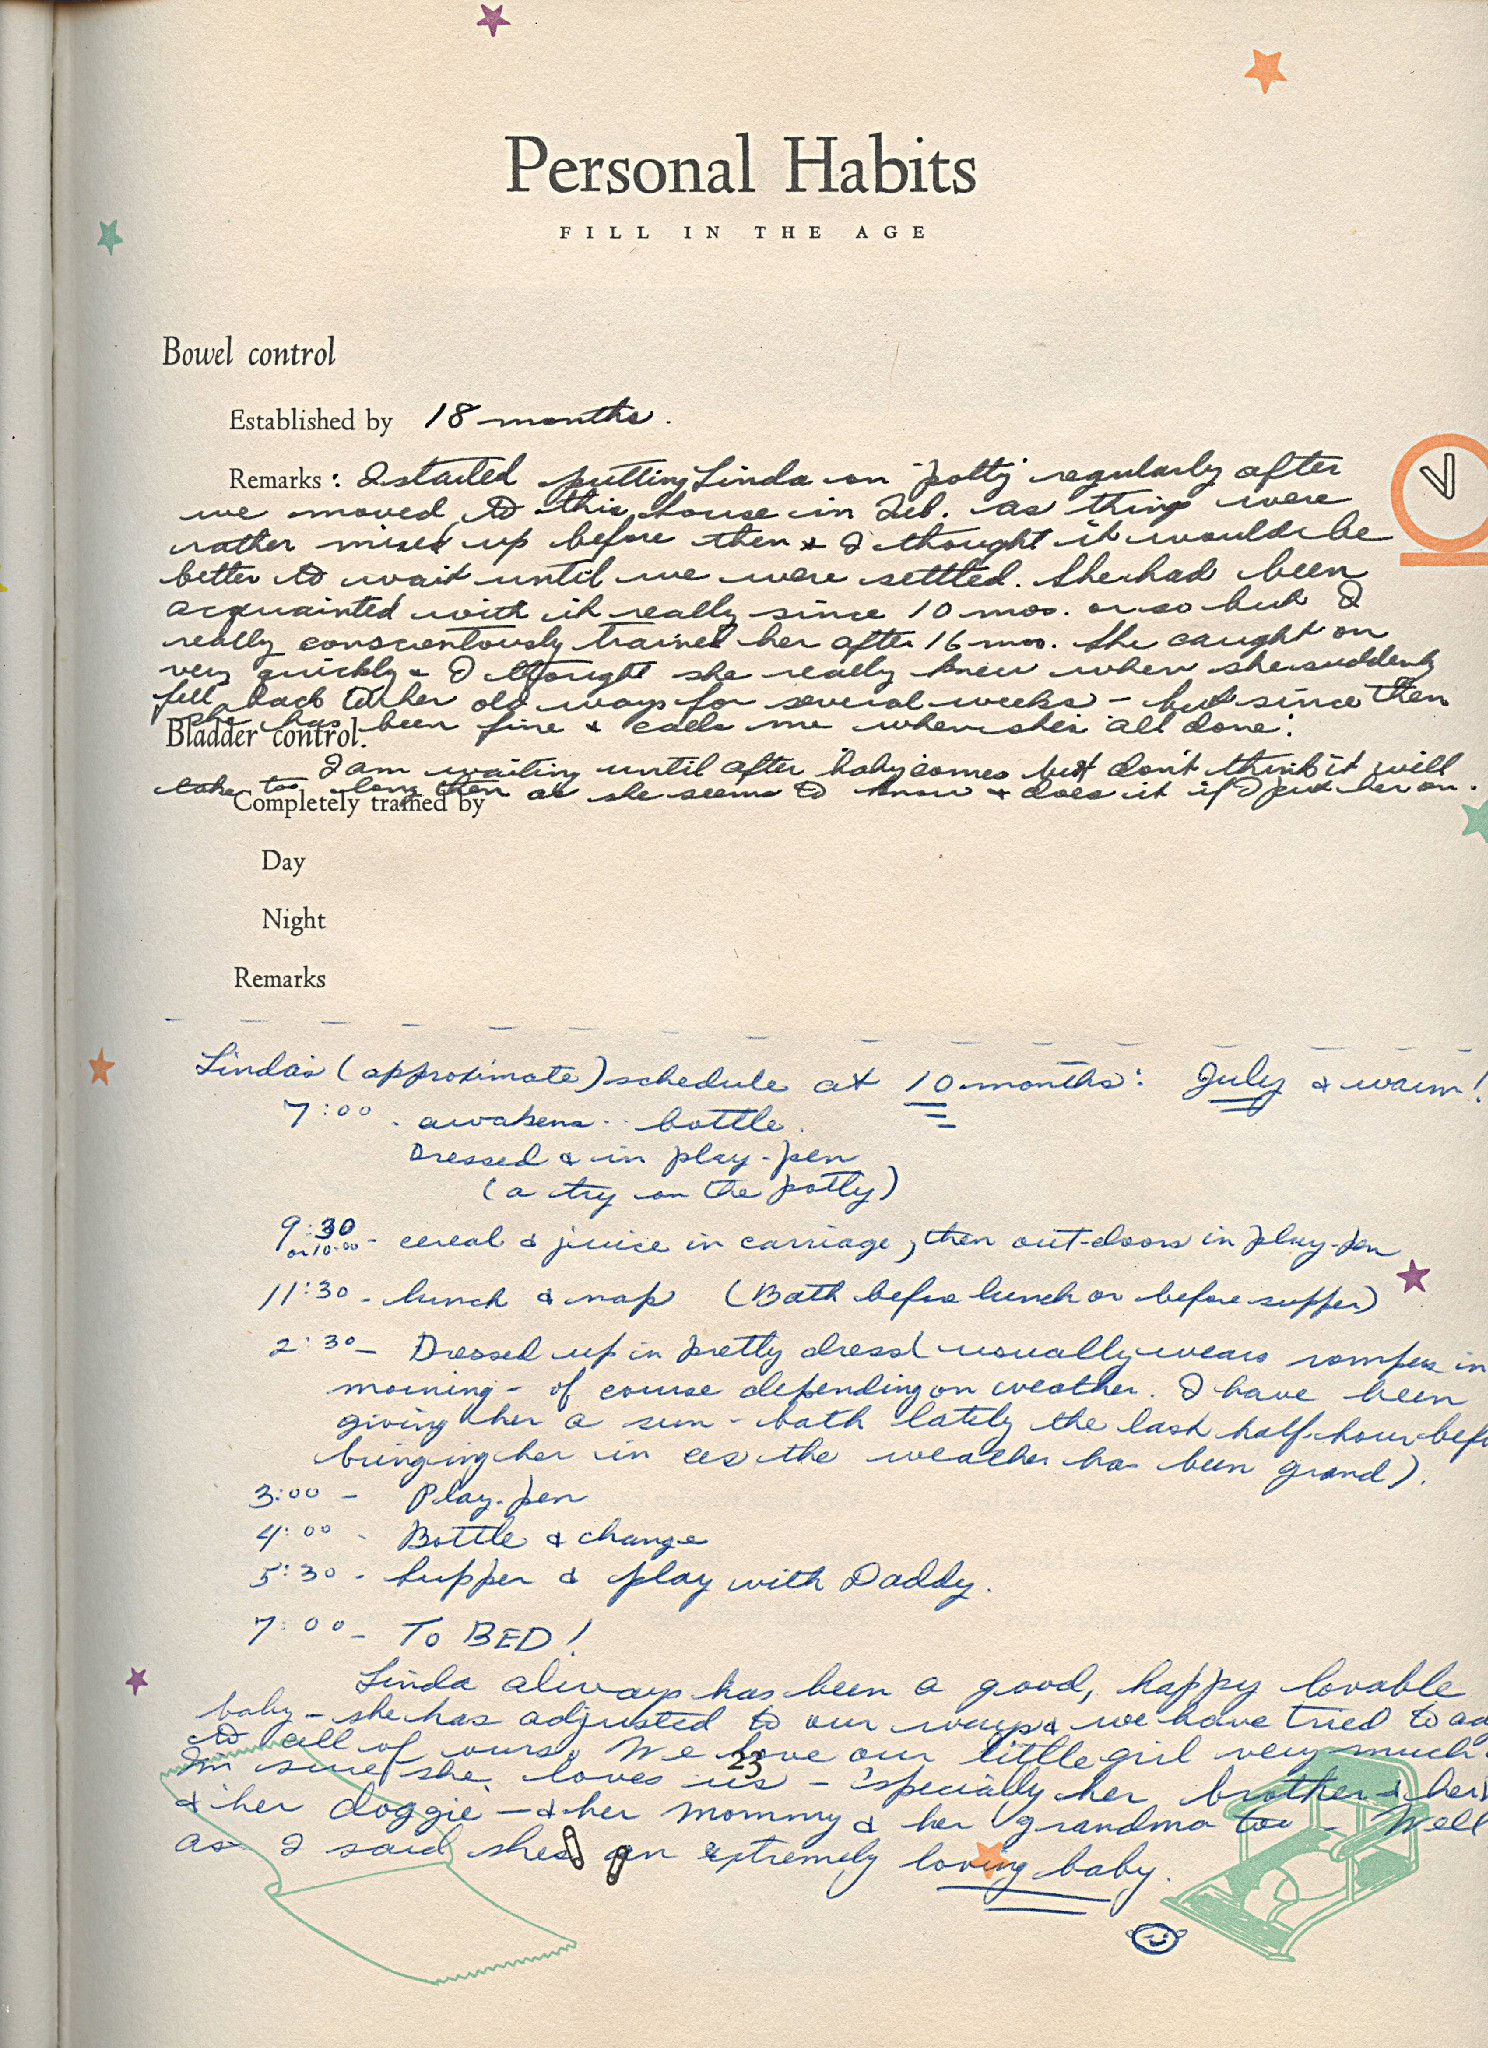 Personal Habits
FILL IN THE AGE
Bowel control
Established by 18 months.
Remarks: I started putting Linda on "potty" regularly after
we moved to this house in Feb. as things were
rather mixed up before then & I thought it would be
better to wait until we were settled. She had been
acquainted with it really since 10 mos. or so but I
really conscientously trained her after 16 mos. She caught on
very quickly & I thought she really knew when she suddenly
fell back to her old ways for several weeks - but since then
she has been fine & calls me when she's "all done".
Bladder control.
I am waiting until after baby comes but don't think it will
take too long then as she seems to know & does it if I put her on.
Completely trained by
Day
Night
Remarks
Linda's (approximate) schedule at 10 months: July & warm!
7:00 - awakens - bottle.
Dressed & in play-pen
(a try on the potty)
9:30 or 10:00 - cereal & juice in carriage, then out-doors in play-pen
11:30 - lunch & nap (Bath before lunch or before supper)
2:30 - Dressed up in pretty dress (usually wears rompers in
morning - of course depending on weather. I have been
giving her a sun-bath lately the last half-hour befo
bringing her in as the weather has been grand).
3:00 - Play-pen
4:00 - Bottle & change
5:30 - Supper & play with Daddy.
7:00 - To BED!
Linda always has been a good, happy lovable
baby - she has adjusted to our ways & we have tried to ad
to all of ours. We love our little girl very much.
I'm sure she loves us - 'specially her brother & her
& her doggie - & her Mommy & her grandma too - Well
as I said she's an extremely loving baby.
23